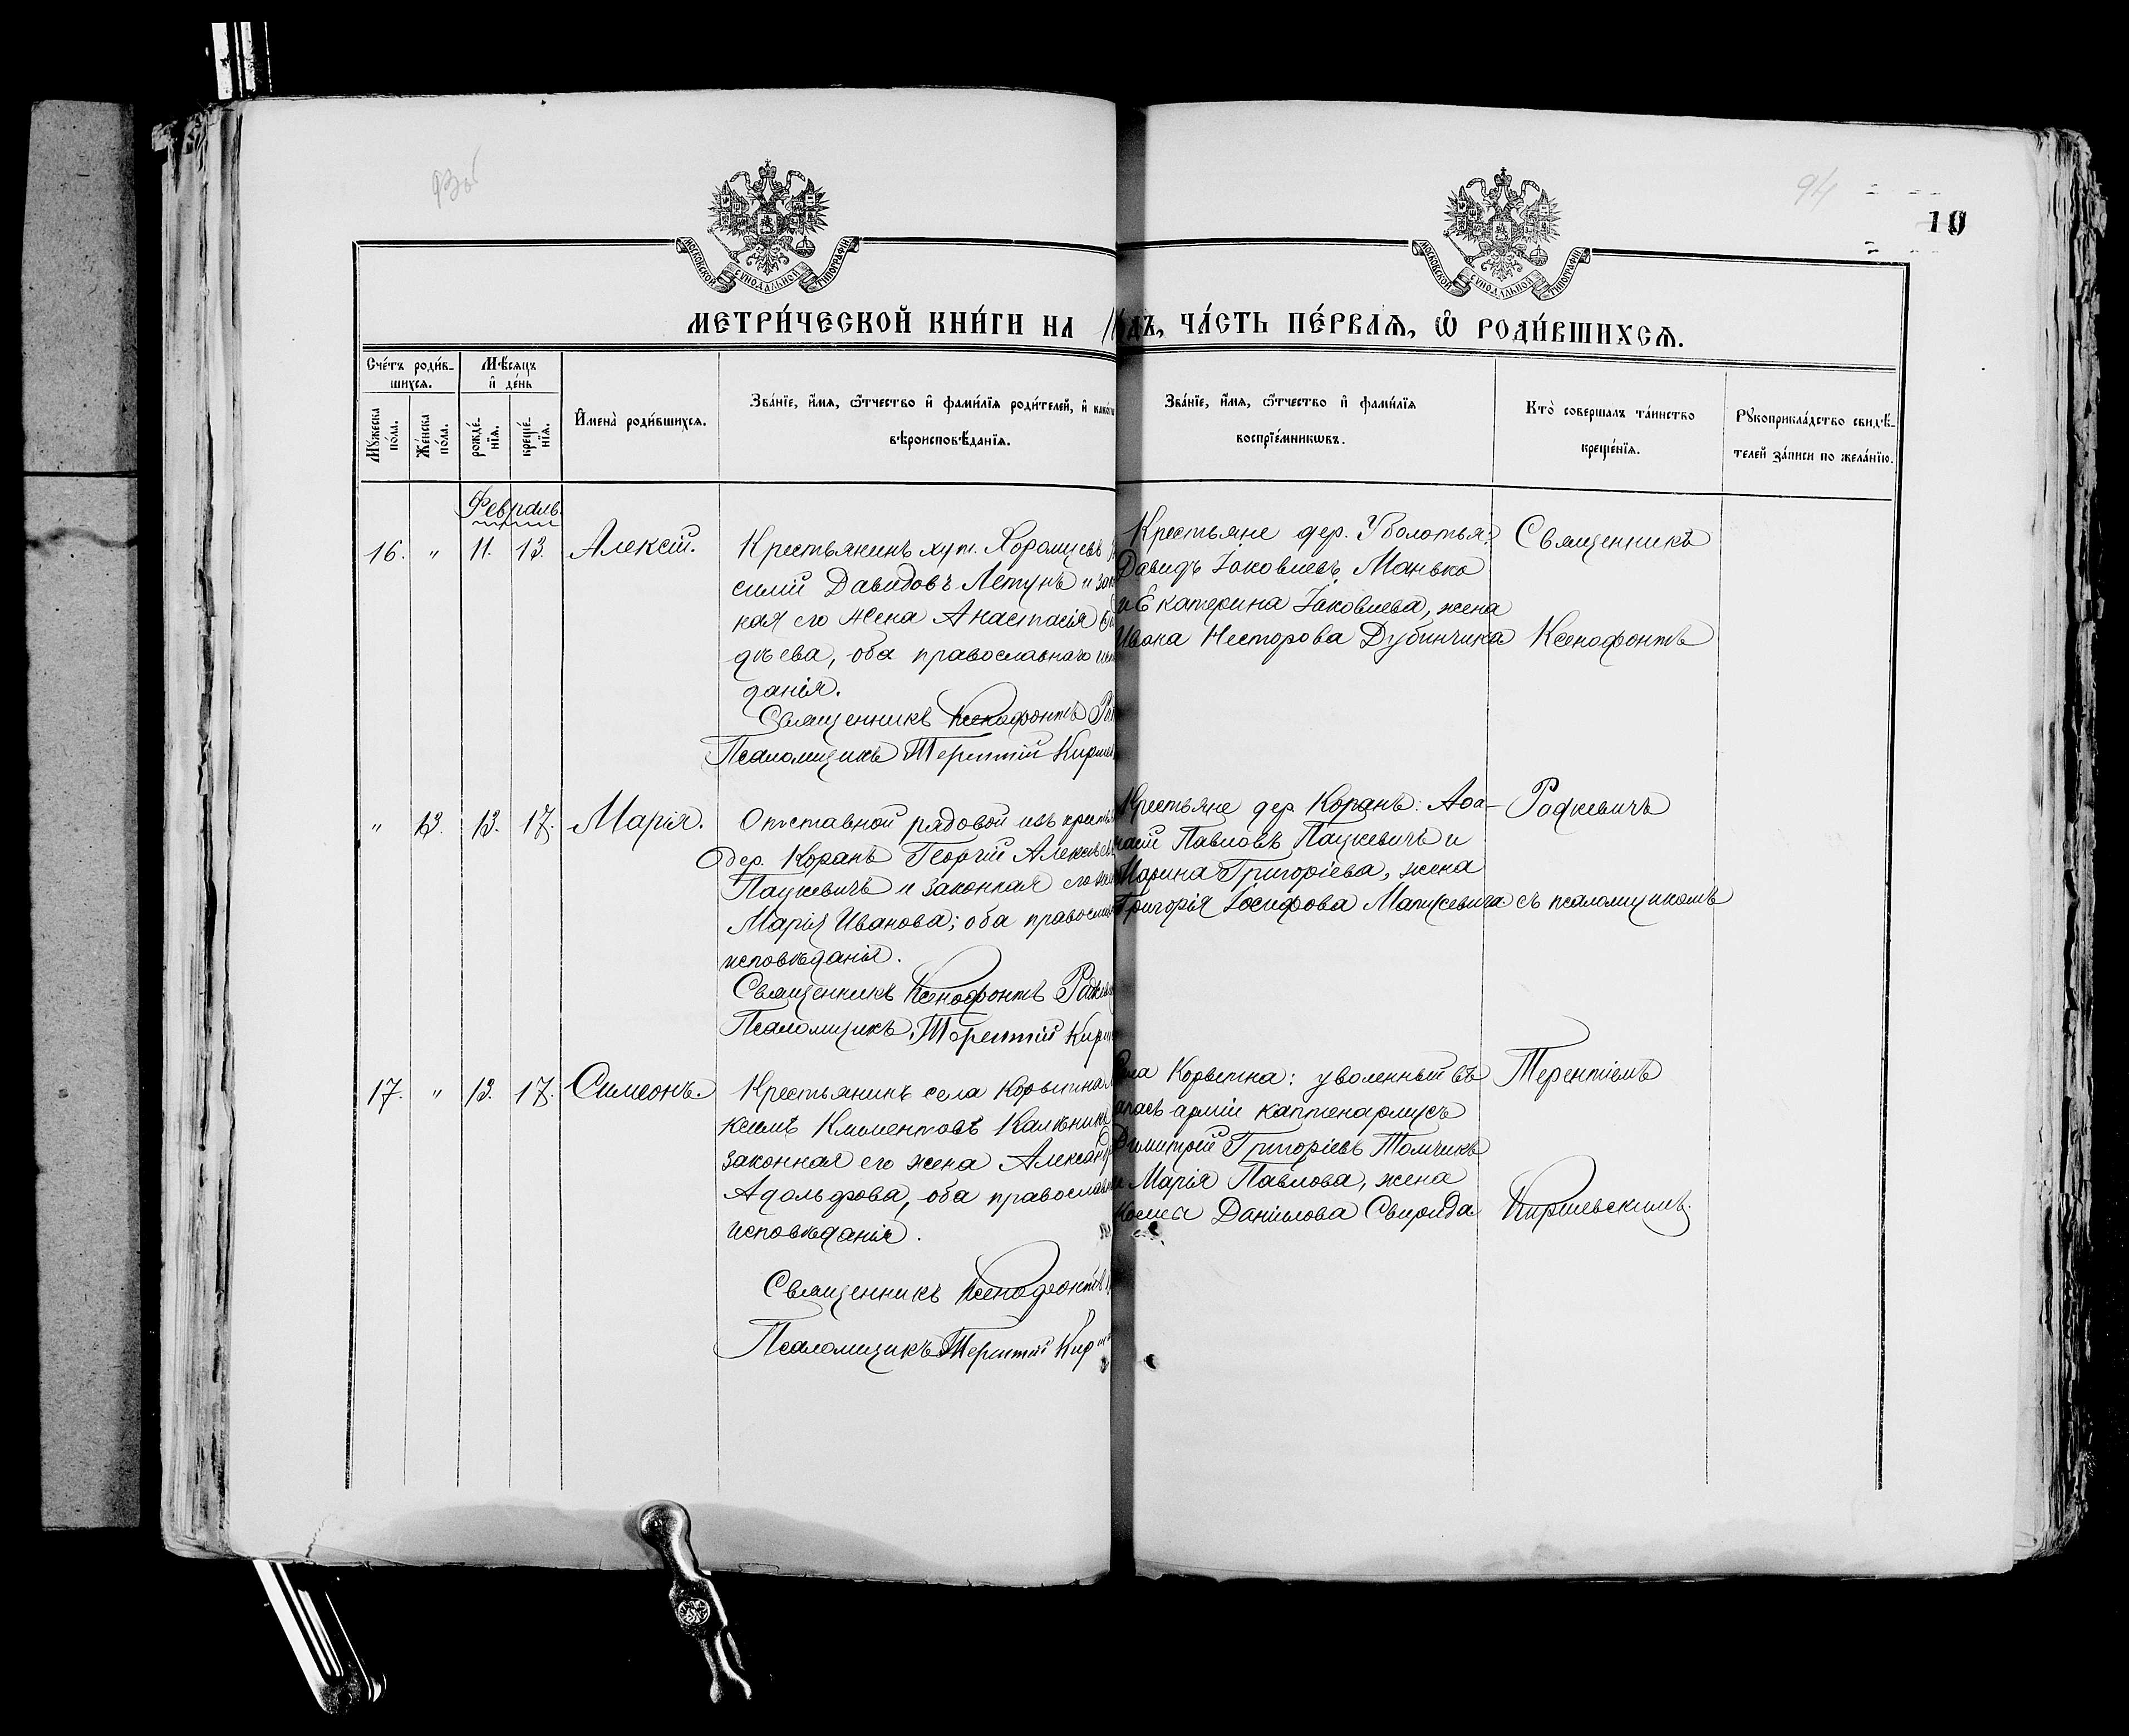 93об
94
10
МОСКОВСКОЙ СѴНОДАЛЬНОЙ ТИПОГРАФІИ
МОСКОВСКОЙ СѴНОДАЛЬНОЙ ТИПОГРАФІИ
МЕТРИ́ЧЕСКОЙ КНИ́ГИ НА
ЧА́СТЬ ПЕ́РВАѦ, Ѿ РОДИ́ВШИХСѦ.
Сче́тъ роди́в-
шихсѧ.
Мѣ́сѧцъ
и҆ де́нь
Мꙋ́жеска
по́ла.
Же́нска
по́ла.
рожде́-
нїѧ.
креще́-
нїѧ.
И҆мена̀ роди́вшихсѧ.
Зва́нїе, и҆́мѧ, ѻ҆́тчество и҆ фами́лїѧ роди́телей, и҆
вѣроисповѣ́данїѧ.
Зва́нїе, и҆́мѧ, ѻ҆́тчество и҆ фами́лїѧ
воспрїе́мникѡвъ.
Кто̀ совершалъ та́инство
креще́нїѧ.
Рꙋкоприкла́дство свидѣ́-
телей за́писи по жела́нїю.
Февраль.
16. " 11. 13. Алексій.
Крестьянинъ хут. Хоромцевъ
силій Давидовъ Летунъ и
ная его жена Анастасія
дѣева, оба православнаго
данія.
Священникъ Ксенофонтъ
Псаломщикъ Терентій
Крестьяне дер. Уболотья:
Давидъ Іаковлевъ Манько
и Екатерина Іаковлева, жена
Ивана Несторова Дубинчика
Священникъ
Ксенофонтъ
" 13. 13. 17. Марія.
Отставной рядовой изъ
дер. Коранъ Георгій
Пацкевичъ и законная его
Марія Ивановa; оба
исповѣданія.
Священникъ Ксенофонтъ
Псаломщикъ Терентій
Крестьяне дер. Коранъ:
Павловъ Пацкевичъ и
Марина Григоріева, жена
Григорія Іосифова Мацкевича
Радкевичъ
съ псаломщикомъ
17. " 13. 17. Симеонъ.
Крестьянинъ села Корытна
ксимъ Климентовъ
законная его жена
Адольфова, оба
исповѣданія.
Священникъ Ксенофонтъ
Псаломщикъ Терентій
Корытна: уволенный въ
арміи каптенармусъ
Димитрій Григоріевъ Томчикъ
и Марія Павлова, жена
Косьмы Даніилова Свирида
Терентіемъ
Киршевскимъ.